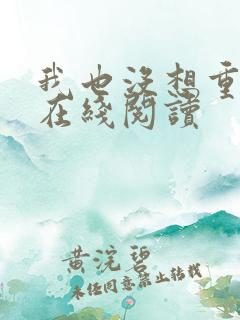 我也没想重
在綫閱讀
黄浣碧
未经同意禁止转载